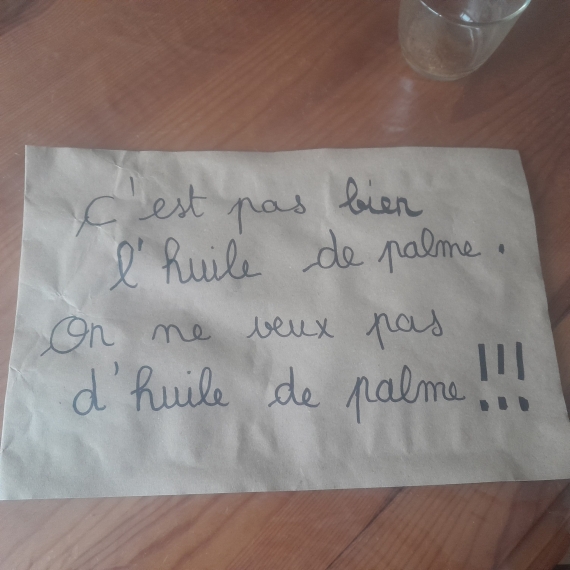 C'est pas bien
l'huile de palme.
On ne veux pas
d'huile de palme !!!